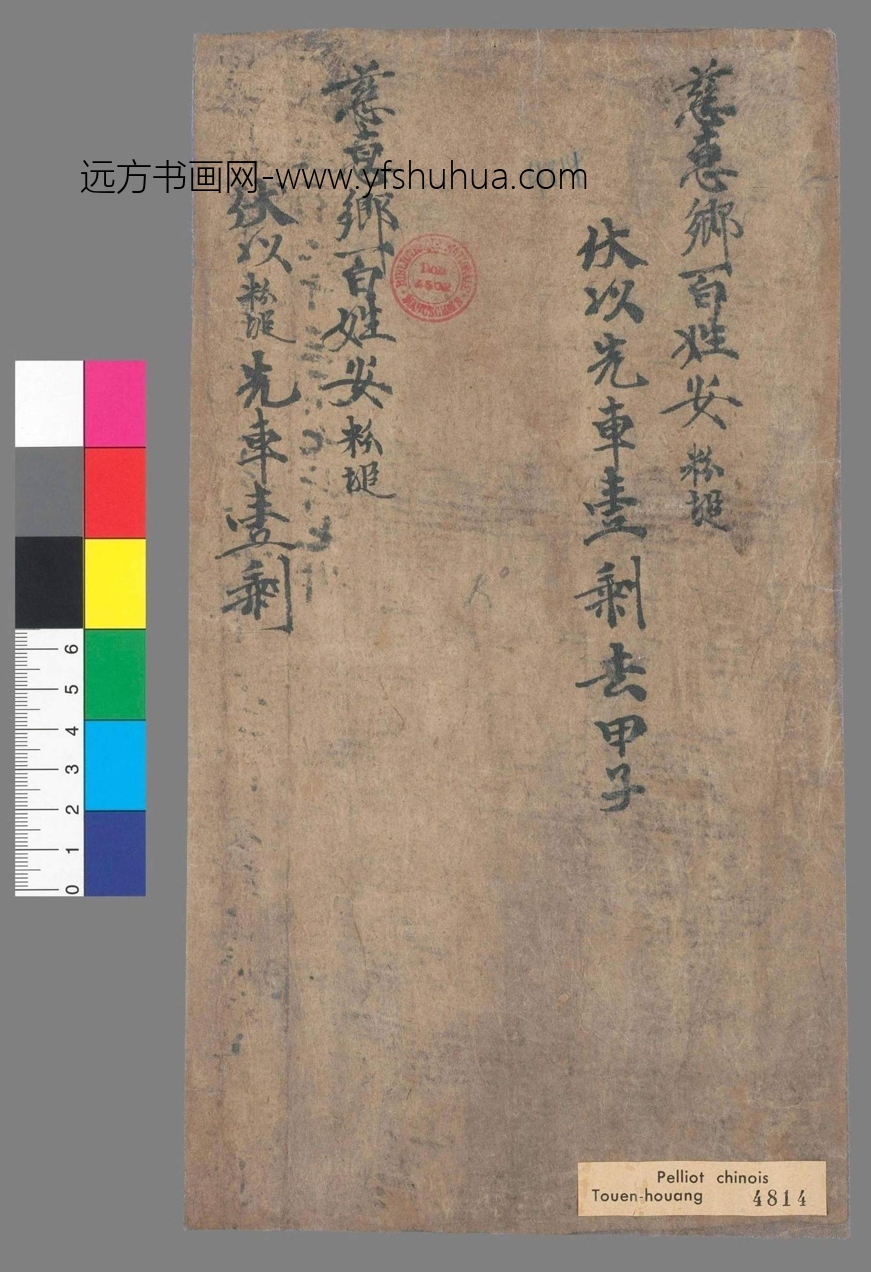 慈惠鄉百姓安粉堆
伏以先車壹剩去甲子
慈惠鄉百姓安粉堆
伏以粉堆先車壹剩
远方书画网-www.yfshuhua.com
6
5
4
3
2
1
0
Pelliot chinois
Touen-houang 4814